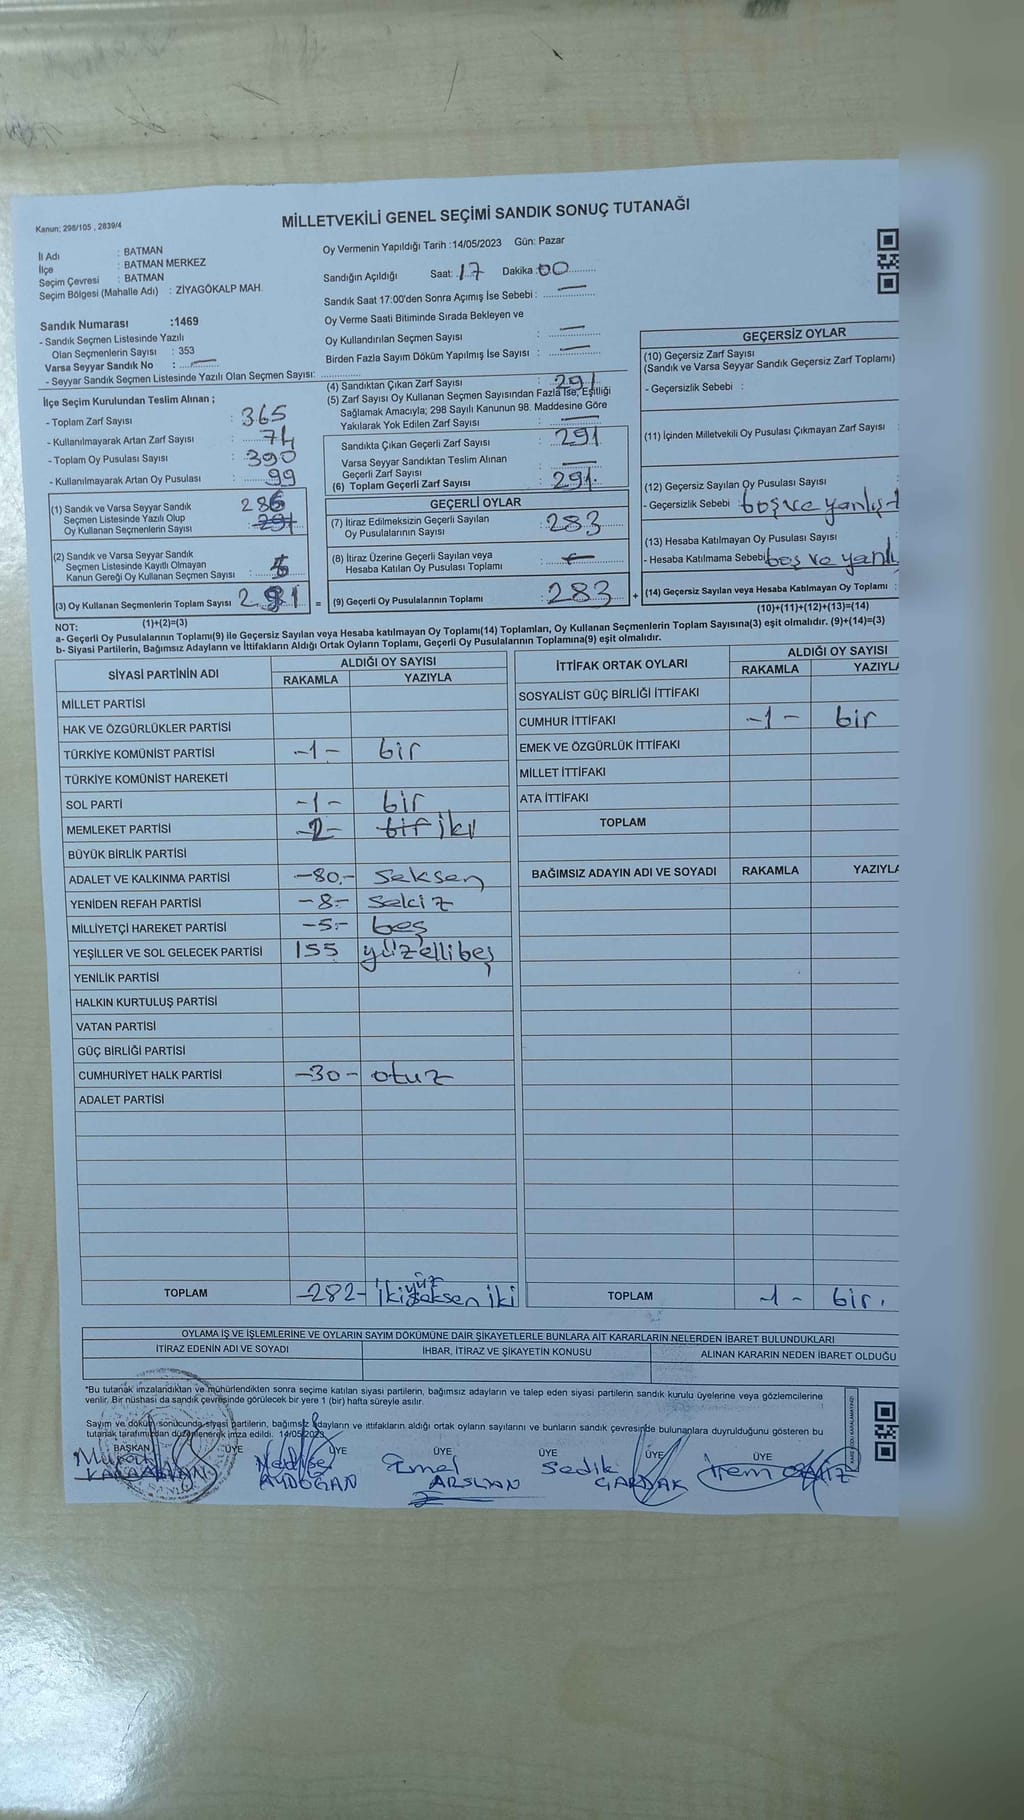 Kanun: 298/105 , 2839/4
MİLLETVEKİLİ GENEL SEÇİMİ SANDIK SONUÇ TUTANAĞI
İl Adı : BATMAN
İlçe : BATMAN MERKEZ
Seçim Çevresi : BATMAN
Seçim Bölgesi (Mahalle Adı) : ZİYAGÖKALP MAH.
Oy Vermenin Yapıldığı Tarih :14/05/2023 Gün: Pazar
Sandığın Açıldığı Saat: 17 Dakika :00
Sandık Saat 17:00'den Sonra Açımış İse Sebebi : —
Oy Verme Saati Bitiminde Sırada Bekleyen ve
Oy Kullandırılan Seçmen Sayısı : —
Birden Fazla Sayım Döküm Yapılmış İse Sayısı : —
Sandık Numarası :1469
- Sandık Seçmen Listesinde Yazılı
Olan Seçmenlerin Sayısı : 353
Varsa Seyyar Sandık No : —
- Seyyar Sandık Seçmen Listesinde Yazılı Olan Seçmen Sayısı:
İlçe Seçim Kurulundan Teslim Alınan ;
- Toplam Zarf Sayısı : 365
- Kullanılmayarak Artan Zarf Sayısı : 74
- Toplam Oy Pusulası Sayısı : 390
- Kullanılmayarak Artan Oy Pusulası : 99
(1) Sandık ve Varsa Seyyar Sandık
Seçmen Listesinde Yazılı Olup
Oy Kullanan Seçmenlerin Sayısı : 286 291
(2) Sandık ve Varsa Seyyar Sandık
Seçmen Listesinde Kayıtlı Olmayan
Kanun Gereği Oy Kullanan Seçmen Sayısı : 5
(3) Oy Kullanan Seçmenlerin Toplam Sayısı 291
(1)+(2)=(3)
(4) Sandıktan Çıkan Zarf Sayısı : 291
(5) Zarf Sayısı Oy Kullanan Seçmen Sayısından Fazla İse, Eşitliği
Sağlamak Amacıyla; 298 Sayılı Kanunun 98. Maddesine Göre
Yakılarak Yok Edilen Zarf Sayısı : —
Sandıkta Çıkan Geçerli Zarf Sayısı : 291
Varsa Seyyar Sandıktan Teslim Alınan
Geçerli Zarf Sayısı : —
(6) Toplam Geçerli Zarf Sayısı : 291
GEÇERLİ OYLAR
(7) İtiraz Edilmeksizin Geçerli Sayılan
Oy Pusulalarının Sayısı : 283
(8) İtiraz Üzerine Geçerli Sayılan veya
Hesaba Katılan Oy Pusulası Toplamı :
= (9) Geçerli Oy Pusulalarının Toplamı : 283 +
GEÇERSİZ OYLAR
(10) Geçersiz Zarf Sayısı
(Sandık ve Varsa Seyyar Sandık Geçersiz Zarf Toplamı)
- Geçersizlik Sebebi :
(11) İçinden Milletvekili Oy Pusulası Çıkmayan Zarf Sayısı :
(12) Geçersiz Sayılan Oy Pusulası Sayısı :
- Geçersizlik Sebebi : boş ve yanlış
(13) Hesaba Katılmayan Oy Pusulası Sayısı :
- Hesaba Katılmama Sebebi boş ve yanlı
(14) Geçersiz Sayılan veya Hesaba Katılmayan Oy Toplamı :
(10)+(11)+(12)+(13)=(14)
NOT:
a- Geçerli Oy Pusulalarının Toplamı(9) ile Geçersiz Sayılan veya Hesaba katılmayan Oy Toplamı(14) Toplamları, Oy Kullanan Seçmenlerin Toplam Sayısına(3) eşit olmalıdır. (9)+(14)=(3)
b- Siyasi Partilerin, Bağımsız Adayların ve İttifakların Aldığı Ortak Oyların Toplamı, Geçerli Oy Pusulalarının Toplamına(9) eşit olmalıdır.
SİYASİ PARTİNİN ADI ALDIĞI OY SAYISI
RAKAMLA YAZIYLA
MİLLET PARTİSİ
HAK VE ÖZGÜRLÜKLER PARTİSİ
TÜRKİYE KOMÜNİST PARTİSİ -1- bir
TÜRKİYE KOMÜNİST HAREKETİ
SOL PARTİ -1- bir
MEMLEKET PARTİSİ -2- bir iki
BÜYÜK BİRLİK PARTİSİ
ADALET VE KALKINMA PARTİSİ -80.- seksen
YENİDEN REFAH PARTİSİ -8- sekiz
MİLLİYETÇİ HAREKET PARTİSİ -5- beş
YEŞİLLER VE SOL GELECEK PARTİSİ 155 yüzellibeş
YENİLİK PARTİSİ
HALKIN KURTULUŞ PARTİSİ
VATAN PARTİSİ
GÜÇ BİRLİĞİ PARTİSİ
CUMHURİYET HALK PARTİSİ -30- otuz
ADALET PARTİSİ
TOPLAM -282- iki yüz seksen iki
İTTİFAK ORTAK OYLARI ALDIĞI OY SAYISI
RAKAMLA YAZIYLA
SOSYALİST GÜÇ BİRLİĞİ İTTİFAKI
CUMHUR İTTİFAKI -1- bir
EMEK VE ÖZGÜRLÜK İTTİFAKI
MİLLET İTTİFAKI
ATA İTTİFAKI
TOPLAM
BAĞIMSIZ ADAYIN ADI VE SOYADI RAKAMLA YAZIYLA
TOPLAM -1- bir.
OYLAMA İŞ VE İŞLEMLERİNE VE OYLARIN SAYIM DÖKÜMÜNE DAİR ŞİKAYETLERLE BUNLARA AİT KARARLARIN NELERDEN İBARET BULUNDUKLARI
İTİRAZ EDENİN ADI VE SOYADI İHBAR, İTİRAZ VE ŞİKAYETİN KONUSU ALINAN KARARIN NEDEN İBARET OLDUĞU
*Bu tutanak imzalandıktan ve mühürlendikten sonra seçime katılan siyasi partilerin, bağımsız adayların ve talep eden siyasi partilerin sandık kurulu üyelerine veya gözlemcilerine
verilir. Bir nüshası da sandık çevresinde görülecek bir yere 1 (bir) hafta süreyle asılır.
Sayım ve döküm sonucunda siyasi partilerin, bağımsız adayların ve ittifakların aldığı ortak oyların sayılarını ve bunların sandık çevresinde bulunanlara duyrulduğunu gösteren bu
tutanak tarafımızdan düzenlenerek imza edildi. 14/05/2023
BAŞKAN ÜYE ÜYE ÜYE ÜYE ÜYE ÜYE
AYDOĞAN Emel ARSLAN Sedik İrem